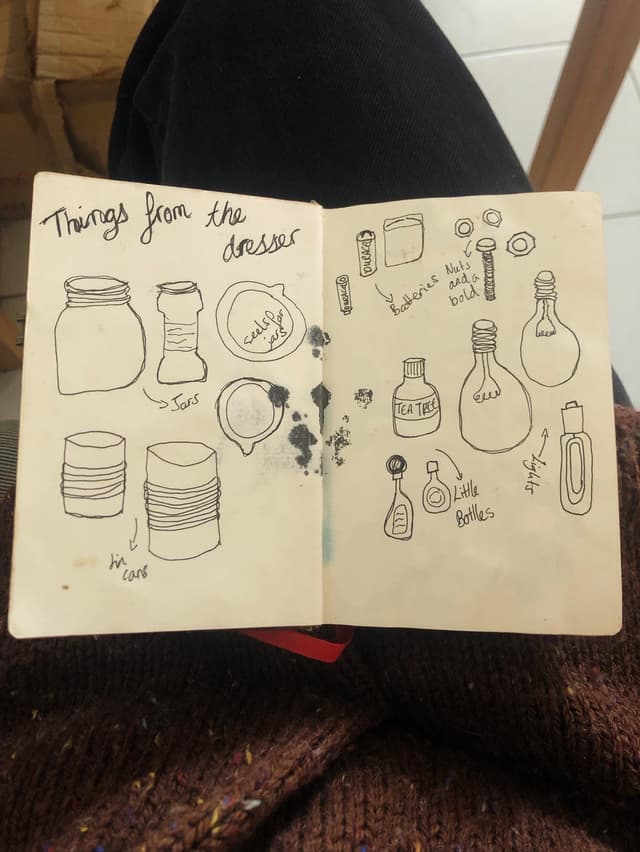 Things from the
dresser
seels for
jars
Jars
tin
cans
Batteries
Nuts
and a
bold
TEA TREE
Lights
Little
Bottles